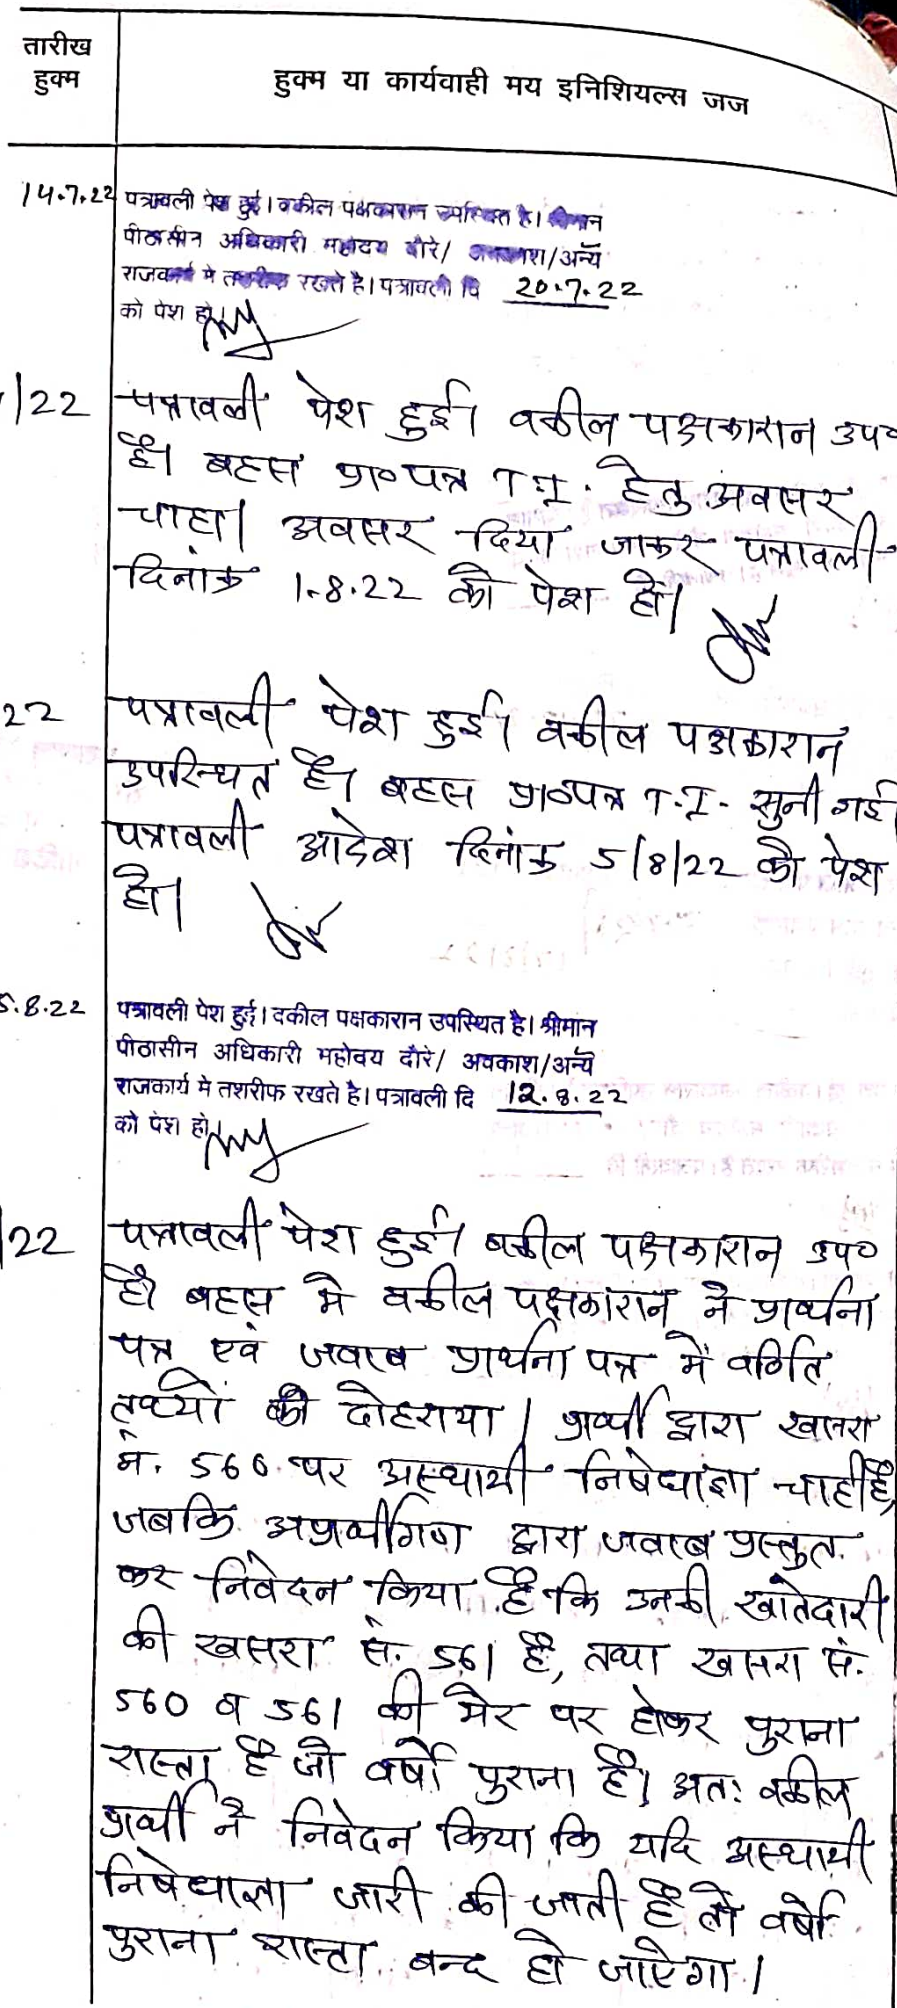 तारीख
हुक्म
हुक्म या कार्यवाही मय इनिशियल्स जज
14.7.22 पत्रावली पेश हुई। वकील पक्षकारान उपस्थित है। श्रीमान
पीठासीन अधिकारी महोदय दौरे/ अवकाश/अन्य
राजकार्य मे तशरीफ रखते है। पत्रावली दि 20.7.22
को पेश हो।
/22 पत्रावली पेश हुई। वकील पक्षकारान उप०
है। बहस प्रा०पत्र T.I. हेतु अवसर
चाहा। अवसर दिया जाकर पत्रावली
दिनांक 1.8.22 को पेश हो।
22 पत्रावली पेश हुई। वकील पक्षकारान
उपस्थित है। बहस प्रा०पत्र T.I. सुनी गई
पत्रावली आदेश दिनांक 5/8/22 को पेश
हो।
5.8.22 पत्रावली पेश हुई। वकील पक्षकारान उपस्थित है। श्रीमान
पीठासीन अधिकारी महोदय दौरे/ अवकाश/अन्य
राजकार्य मे तशरीफ रखते है। पत्रावली दि 12.8.22
को पेश हो।
/22 पत्रावली पेश हुई। वकील पक्षकारान उप०
है। बहस मे वकील पक्षकारान ने प्रार्थना
पत्र एवं जवाब प्रार्थना पत्र में वर्णित
तथ्यों को दोहराया। प्रार्थी द्वारा खसरा
नं. 560 पर अस्थायी निषेधाज्ञा चाही है,
जबकि अप्रार्थीगण द्वारा जवाब प्रस्तुत
कर निवेदन किया है कि उनकी खातेदारी
की खसरा सं. 561 है, तथा खसरा सं.
560 व 561 की मेर पर होकर पुराना
रास्ता है जो वर्षो पुराना है। अतः वकील
प्रार्थी ने निवेदन किया कि यदि अस्थायी
निषेधाज्ञा जारी की जाती है तो वर्षो
पुराना रास्ता बन्द हो जाऐगा।